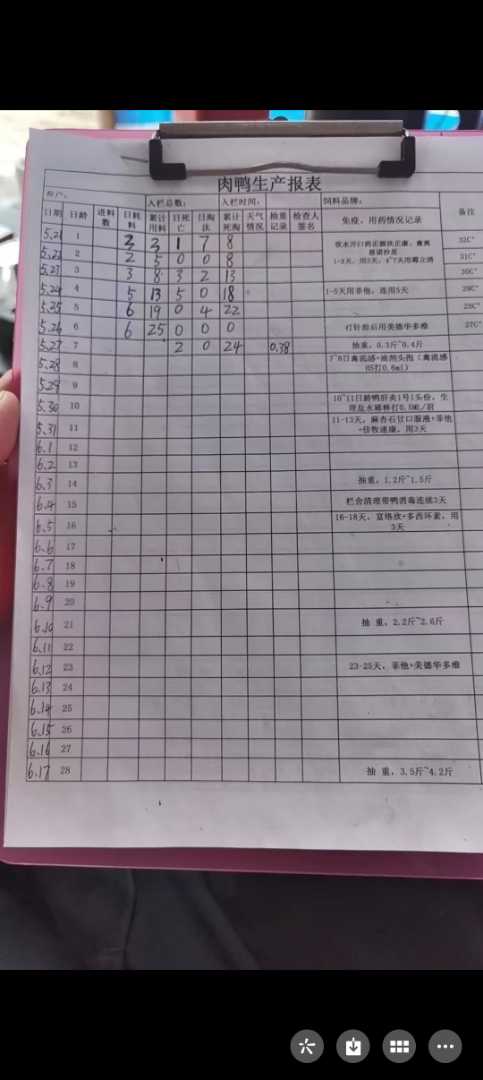 肉鸭生产报表
入栏总数: 入栏时间: 饲料品牌:
日期 日龄 进料数 日耗料 累计用料 日死亡 日淘汰 累计死淘 天气情况 抽重记录 检查人签名 免疫、用药情况记录 备注
5.21 1 3 3 1 7 8 32C°
5.22 2 2 5 0 0 8 31C°
5.23 3 3 8 3 2 13 30C°
5.24 4 5 13 5 0 18 1-5天用菲他,连用5天
5.25 5 6 19 0 4 22
5.26 6 6 25 0 0 0 打针前后用美德华多维 27C°
5.27 7 2 0 24 0.38 抽重,0.3斤~0.4斤
5.28 8 7~8日禽流感+油剂头孢(禽流感H5打0.6ml)
5.29 9
5.30 10 10~11日龄鸭肝炎1号1头份,生理盐水稀释打
5.31 11 11-13天,麻杏石甘口服液+菲他,用3天
6.1 12
6.2 13
6.3 14 抽重,1.2斤~1.5斤
6.4 15 栏舍清理带鸭消毒连续3天
6.5 16 16-18天,多西环素,用3天
6.6 17
6.7 18
6.8 19
6.9 20
6.10 21 抽 重,2.2斤~2.6斤
6.11 22
6.12 23 23-25天,菲他+美德华多维
6.13 24
6.14 25
6.15 26
6.16 27
6.17 28 抽 重,3.5斤~4.2斤